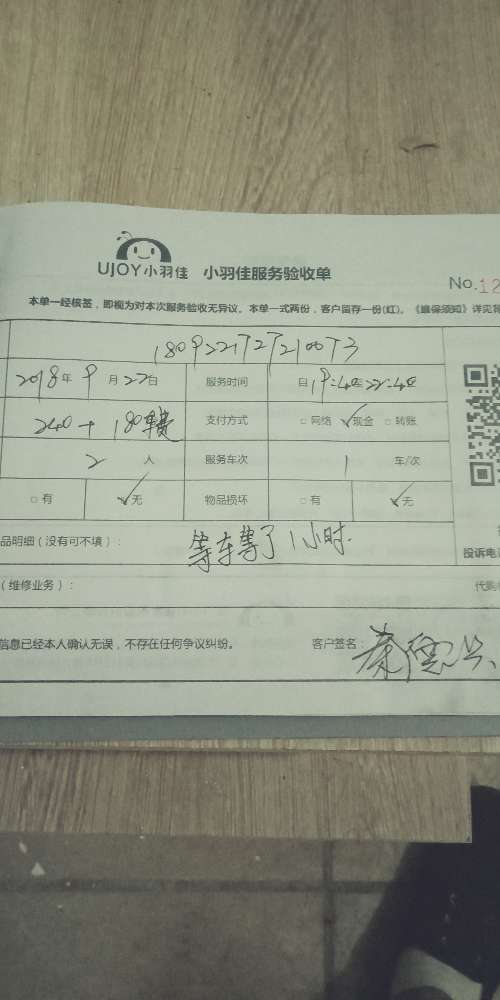 UJOY小羽佳 小羽佳服务验收单
No.12
本单一经核签，即视为对本次服务验收无异议。本单一式两份，客户留存一份(红)。《维保须知》详见背
180922172721073
2018年 9月 22日 服务时间 自 19:40至22:40
240+180车费 支付方式 □网络 ✓现金 □转账
2人 服务车次 1 车/次
□有 ✓无 物品损坏 □有 ✓无
品明细（没有可不填）： 等车等了1小时.
投诉电
（维修业务）： 代购
信息已经本人确认无误，不存在任何争议纠纷。 客户签名：